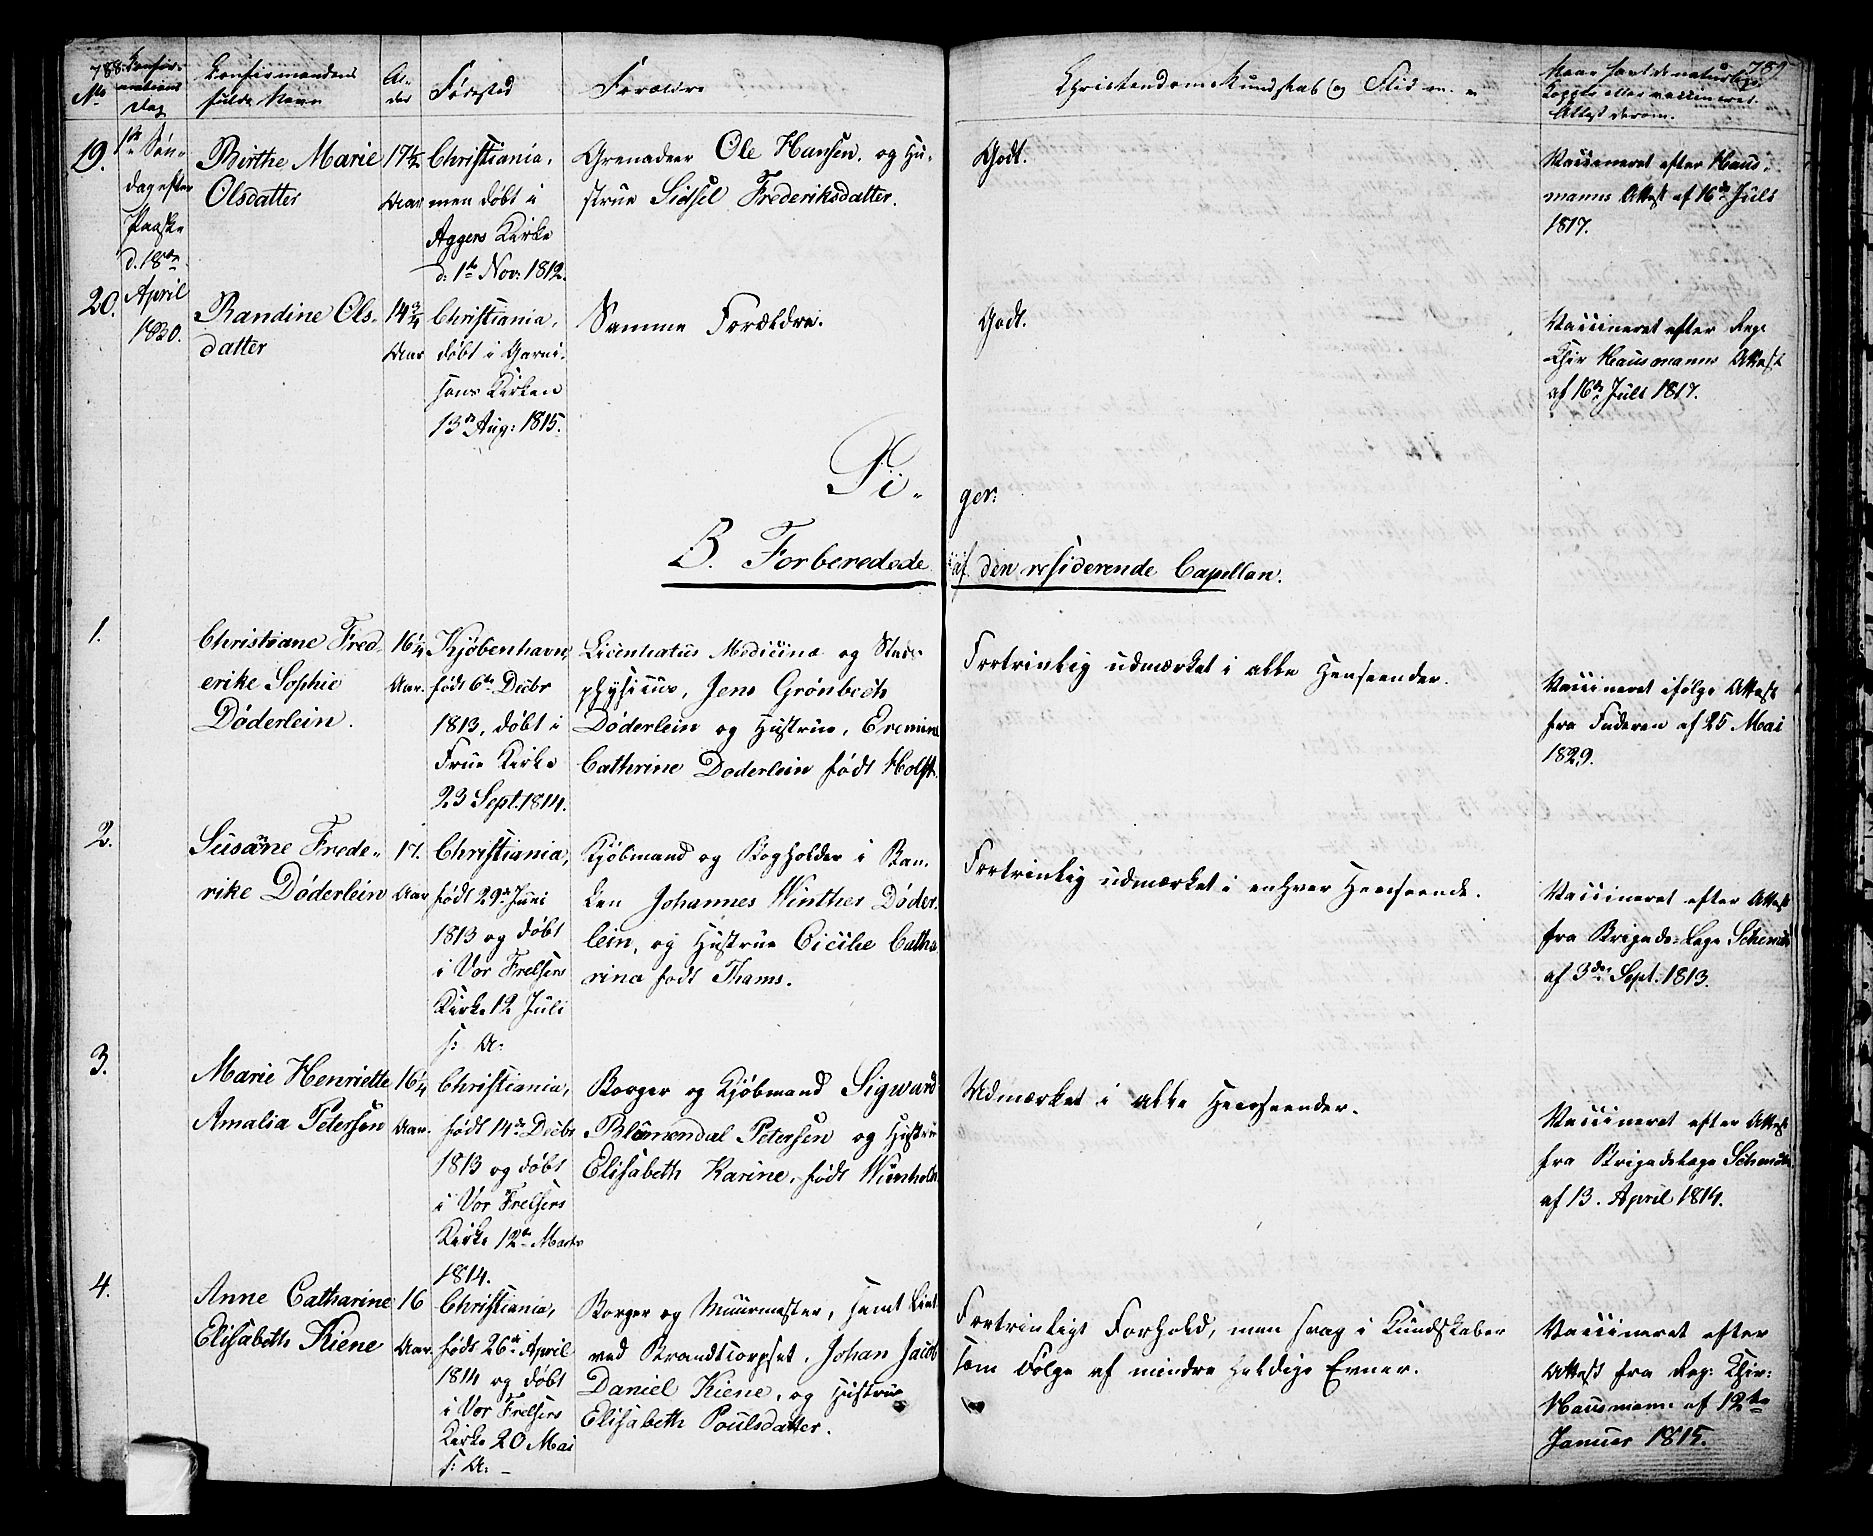 788.
No
Confir-
mations
Dag
Confirmandens
fulde Navn
Al-
der
Fødested
Forældre
Christendoms Kundskab og Flid m. v.
789
Naar havt de naturlige
Kopper eller vaccineret.
Attest derom.
19.
1ste Søn-
dag efter
Paaske
d. 18de
April
1830.
Birthe Marie
Olsdatter
17½
Aar
Christiania,
men døbt i
Aggers Kirke
d: 1te Nov: 1812.
Grenadeer Ole Hansen, og Hu-
strue Sidsel Frederiksdatter.
Godt.
Vaccineret efter Haus-
manns Attest af 16de Juli
1817.
20.
Randine Ols-
datter
14¾
Aar
Christiania,
døbt i Garni-
sons Kirken
13de Aug: 1815.
Samme Forældre.
Godt.
Vaccineret efter Reg:
Chir Hausmanns Attest
af 16de Juli 1817.
Pi-
ger.
B. Forberedede af den residerende Capellan.
1.
Christiane Fred-
erike Sophie
Døderlein.
16¼
Aar.
Kjøbenhavn,
født 6te Decbr
1813, døbt i
Frue Kirke
23 Sept. 1814.
Licentiatus Medicinæ og Stads-
physicus, Jens Grønbech
Døderlein og Hustrue,
Cathrine Døderlein født Holst.
Fortrinlig udmærket i alle Henseender.
Vaccineret ifølge Attest
fra Faderen af 25 Mai
1829.
2.
Susanne Frede-
rike Døderlein
17.
Aar
Christiania,
født 29de Juni
1813 og døbt
i Vor Frelsers
Kirke 12 Juli
s: A:
Kjøbmand og Bogholder i Ban-
ken Johannes Winther Døder-
lein, og Hustrue Cicilie Catha-
rina født Thams.
Fortrinlig udmærket i enhver Henseende.
Vaccineret efter Attest
fra Brigade-Læge
af 3die Sept. 1813.
3.
Marie Henriette
Amalia Petersen
16¼
Aar.
Christiania,
født 14de Decbr
1813 og døbt
i Vor Frelsers
Kirke 12te Marts
1814.
Borger og Kjøbmand Sigward
Blumendal Petersen og Hustrue
Elisabeth Karine, født Wienholt
Udmærket i alle Henseender.
Vaccineret efter Attest
fra Brigadelæge
af 13. April 1814.
4.
Anne Catharine
Elisabeth Kiene
16
Aar.
Christiania,
født 26de April
1814 og døbt
i Vor Frelsers
Kirke 20 Mai
s: A: -
Borger og Muurmester, samt Lieut
ved Brandtcorpset, Johan Jacob
Daniel Kiene, og Hustrue
Elisabeth Poulsdatter.
Fortrinligt Forhold, men svag i Kundskaber
som Følge af mindre heldige Evner.
Vaccineret efter
Attest fra Reg: Chir:
Hausmann af 12te
Januar 1815.